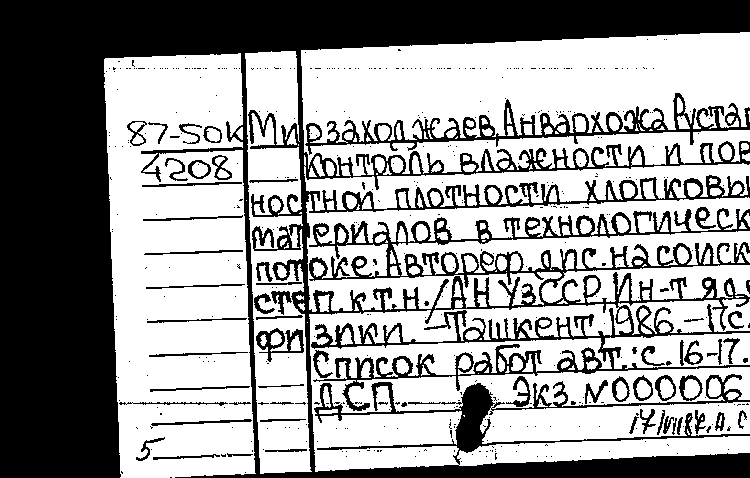 87-50К Мирзаходжаев, Анвархожа Руста
4208 Контроль влажности и пов
ностной плотности хлопковы
материалов в технологическ
потоке: Автореф. дис. на соиск
степ. к.т.н. / АН УзССР, Ин-т яд
физики. — Ташкент, 1986. — 17с.
Список работ авт.: с. 16-17.
ДСП. Экз. N000006
5